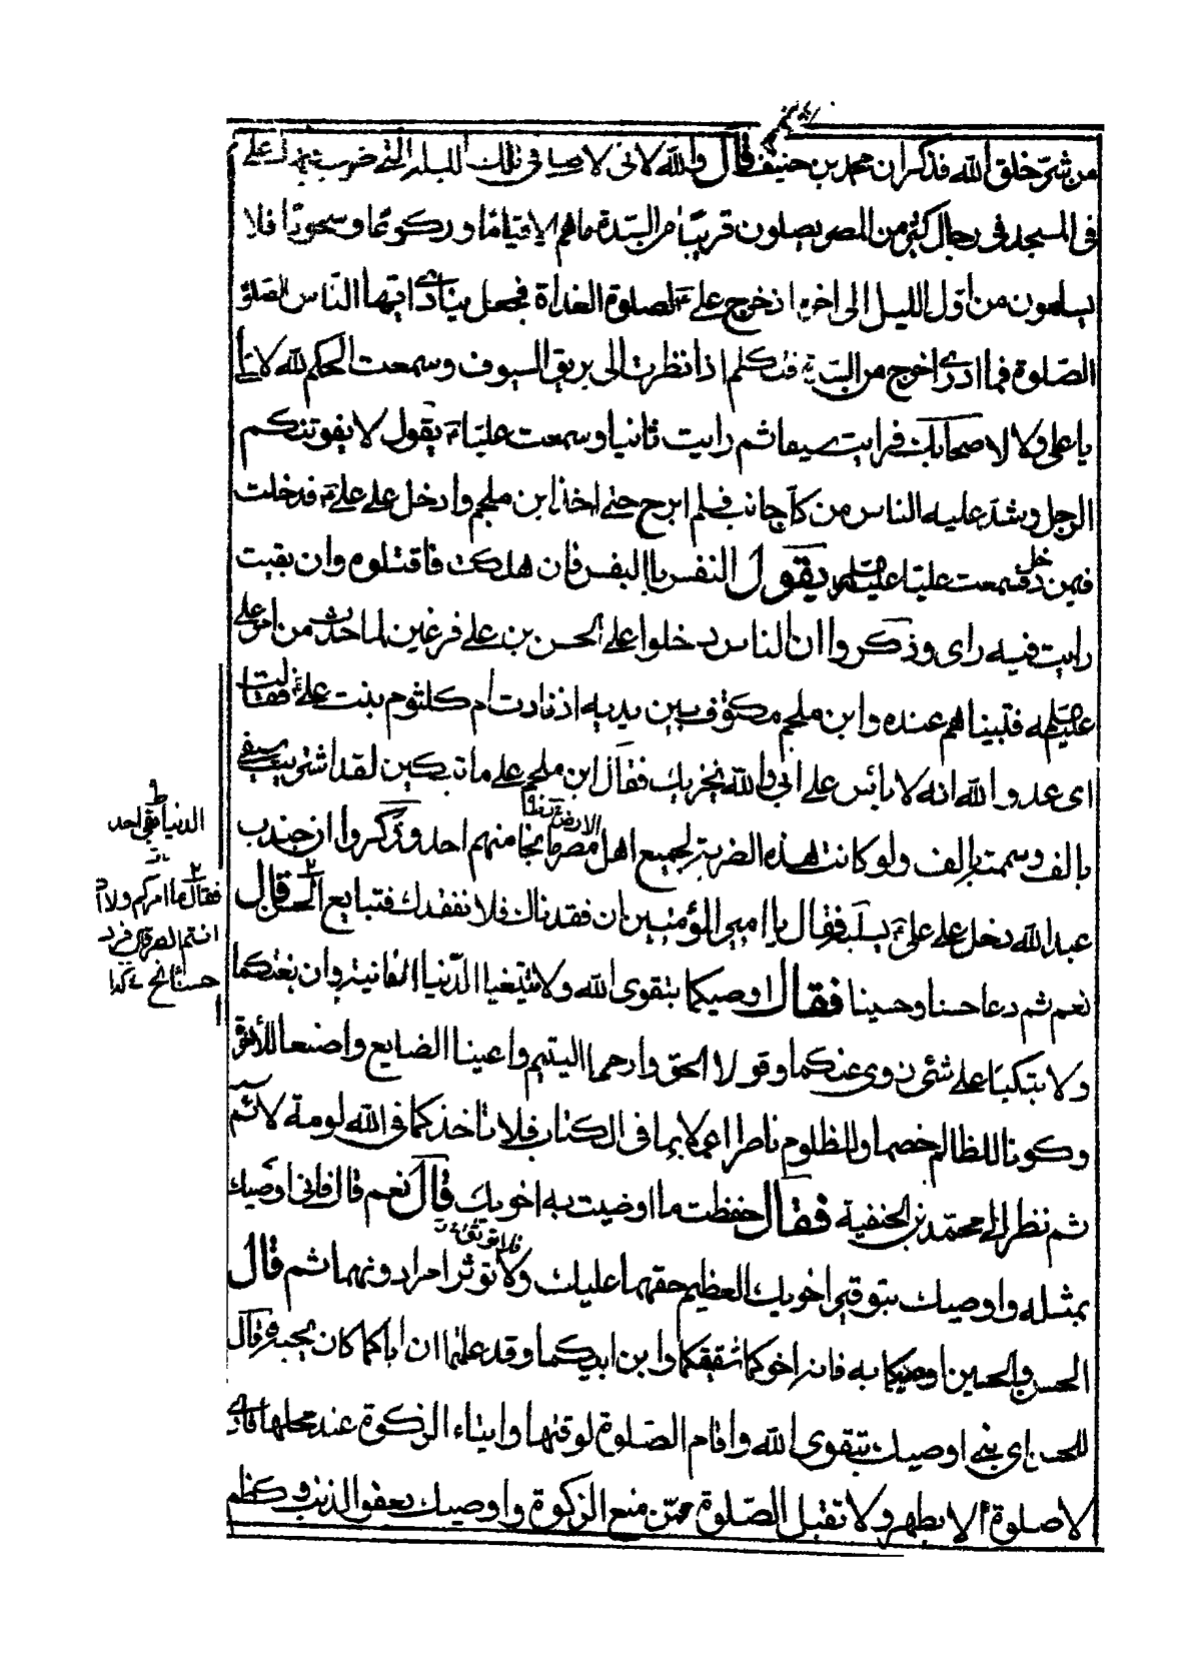 من شرّ خلق الله فذكر ان محمد بن حنيف قال والله لانى لاصلى فى تلك الليلة التى ضرب فيها على
فى المسجد فى رجال كثير من المصر يصلون قريبًا من السّدة ما هم الا قيامًا وركوعًا وسجودًا فلا
يسلمون من اول الليل الى اخره اذ خرج علىؑ لصلوة الغداة فجعل ينادى ايّها الناس الصلوة
الصّلوة فما ادرى اخرج من السّدة فتكلم اذا نظرت الى بريق السيوف وسمعت الحكم لله لا لك
يا على ولا لاصحابك فرايت سيفا ثم رايت ثانيا وسمعت عليّاؑ يقول لا يفوتنكم
الرجل وشد عليه الناس من كل جانب فلم ابرح حتى اخذ ابن ملجم وادخل على علىؑ فدخلت
فيمن دخل فسمعت عليّا يقول النفس بالنفس فان هلكت فاقتلوه وان بقيت
رايت فيه راى وذكروا ان الناس دخلوا على الحسن بن على فزعين لما حدث من امر على
فبينا هم عنده وابن ملجم مكتوف بين يديه اذ نادت ام كلثوم بنت علىؑ فقالت
اى عدو الله انه لا باس على ابى والله يخزيك فقال ابن ملجم على ما تبكين لقد اشتريت سيفى
بالف وسمته بالف ولو كانت هذه الضربة لجميع اهل مصر ما نجا منهم احد وذكروا ان جندب
عبد الله دخل على علىؑ فقال يا امير المؤمنين ان فقدناك فلا نفقدك فنبايع الحسن قال
نعم ثم دعا حسنا وحسينا فقال اوصيكما بتقوى الله ولا تبتغيا الدّنيا الفانية وان بغتكما
ولا تبكيا على شئ زوى عنكما وقولا الحق وارحما اليتيم واعينا الضايع واصنعا للأخرة
وكونا للظالم خصما وللمظلوم ناصرا اعملا بما فى الكتاب فلا تاخذكما فى الله لومة لائم
ثم نظر الى محمّد بن الحنفية فقال حفظت ما اوصيت به اخويك قال نعم قال فانى اوصيك
بمثله واوصيك بتوقير اخويك العظيم حقهما عليك ولا توثر امرا دونهما ثم قال
الحسن والحسين اوصيكما به فانه اخوكما شقيقكما وابن ابيكما وقد علمتما ان اباكما كان يحبه وقال
للحسن اى بنى اوصيك بتقوى الله واقام الصّلوة لوقتها وايتاء الزكوة عند محلها فانه
لا صلوة الا بطهر ولا تقبل الصّلوة ممّن منع الزكوة واوصيك بعفو الذنب وكظم
فقال ما امركم ولا